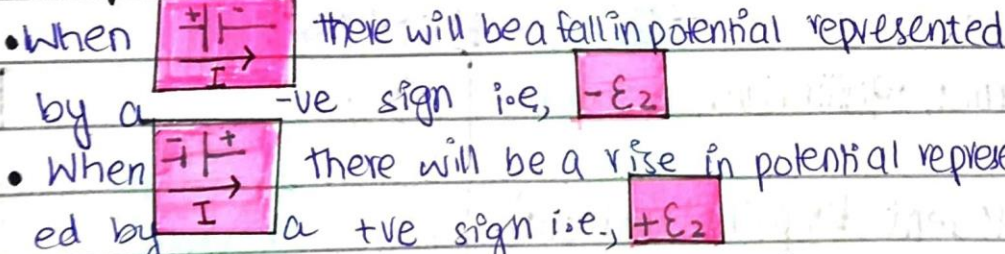 •When + - I there will be a fall in potential represented
by a -ve sign i.e, -ε₂
• When - + I there will be a rise in potential represe
ed by a +ve sign i.e., +ε₂